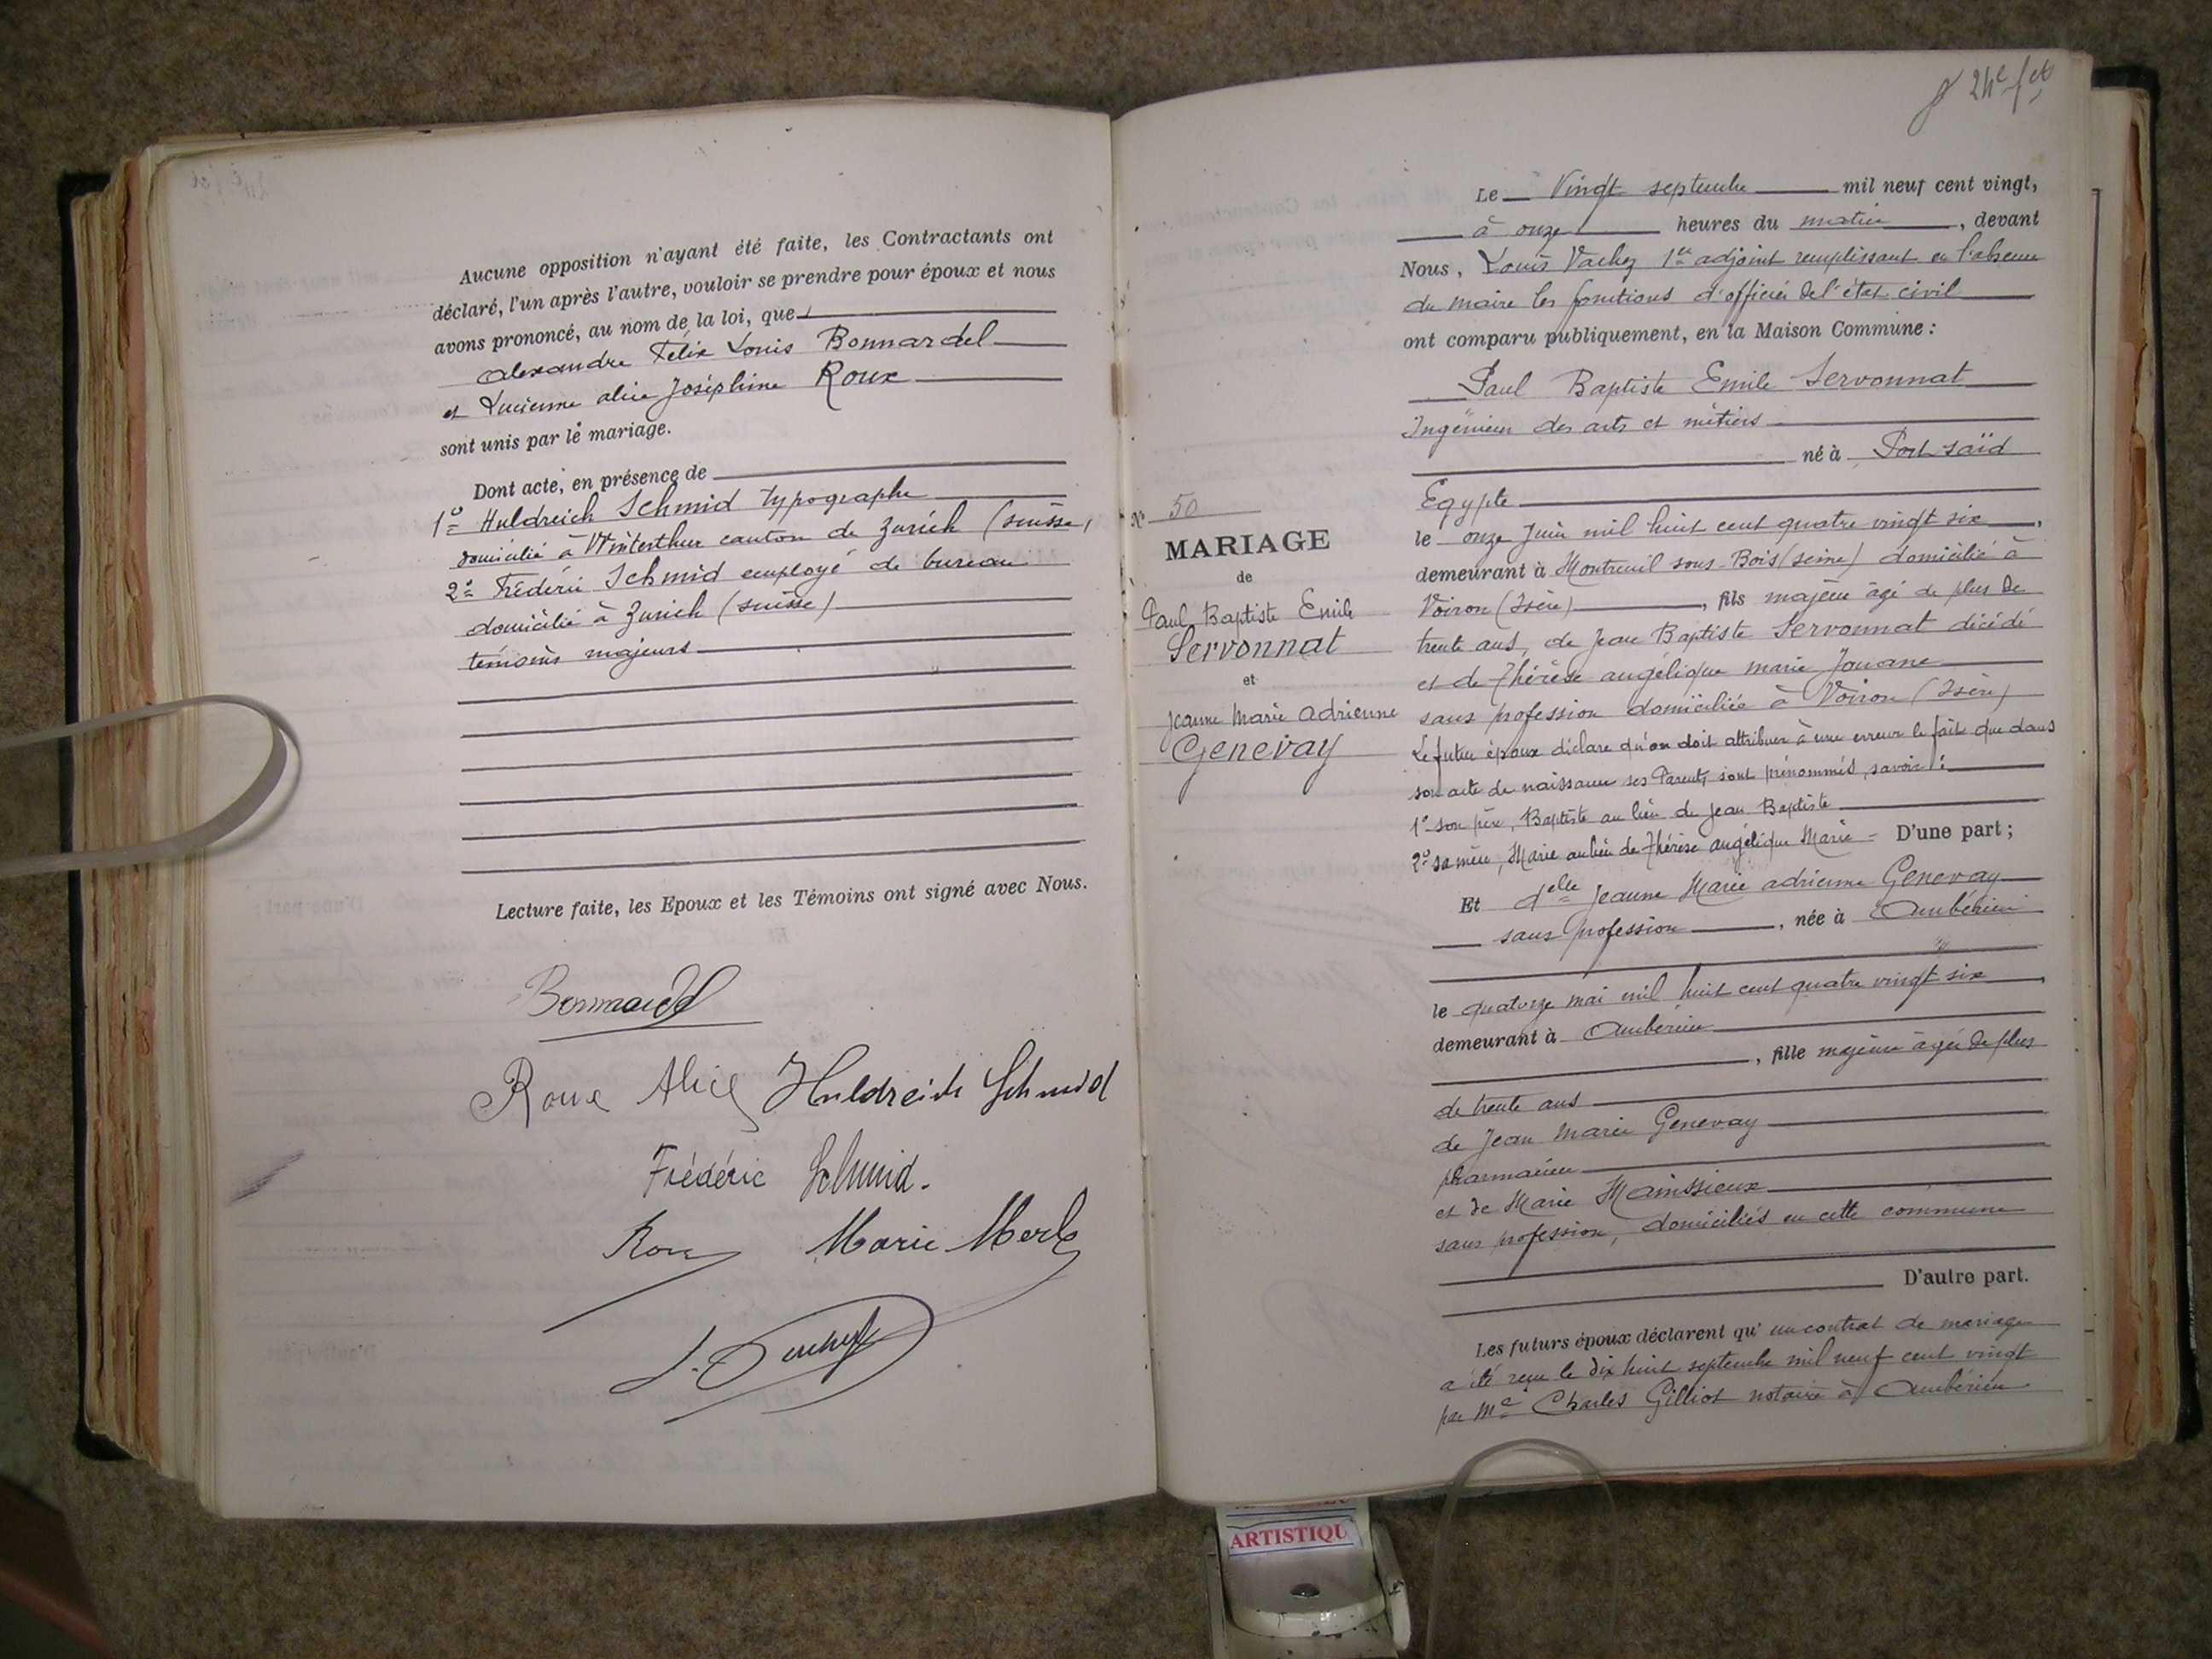 Aucune opposition n'ayant été faite, les Contractants ont
déclaré, l'un après l'autre, vouloir se prendre pour époux et nous
avons prononcé, au nom de la loi, que
Alexandre Félix Louis Bonnardel
et Lucienne Alice Joséphine Roux
sont unis par le mariage.
Dont acte, en présence de
1º Huldreich Schmid typographe
domicilié à Winterthur canton de Zurich (suisse,
2º Frédéric Schmid employé de bureau
domicilié à Zurich (suisse)
témoins majeurs
Lecture faite, les Epoux et les Témoins ont signé avec Nous.
Bonnardel
Roux Alice Huldreich Schmid
Frédéric Schmid.
Roux Marie Merle
24e fet
Nº 50
MARIAGE
de
Paul Baptiste Emile
Servonnat
et
Jeanne Marie Adrienne
Genevay
Le Vingt septembre mil neuf cent vingt,
à onze heures du matin, devant
Nous, Louis Vachez 1er adjoint remplissant en l'absence
du maire les fonctions d'officier de l'état civil
ont comparu publiquement, en la Maison Commune :
Paul Baptiste Emile Servonnat
Ingénieur des arts et métiers
né à Port-saïd
Egypte
le onze Juin mil huit cent quatre vingt six,
demeurant à Montreuil sous-Bois (seine) domicilié à
Voiron (Isère), fils majeur âgé de plus de
trente ans, de Jean Baptiste Servonnat décédé
et de Thérèse angélique marie Jouane
sans profession domiciliée à Voiron (Isère)
Le futur époux déclare qu'on doit attribuer à une erreur le fait que dans
son acte de naissance ses Parents sont prénommés, savoir :
1º son père, Baptiste au lieu de Jean Baptiste
2º sa mère, Marie au lieu de Thérèse angélique Marie - D'une part ;
Et delle Jeanne Marie adrienne Genevay
sans profession, née à Ambérieu
le quatorze mai mil huit cent quatre vingt six,
demeurant à Ambérieu
, fille majeure âgée de plus
de trente ans
de Jean Marie Genevay
pharmacien
et de Marie Mainssieux
sans profession, domiciliés en cette commune
D'autre part.
Les futurs époux déclarent qu'un contrat de mariage
a été reçu le dix huit septembre mil neuf cent vingt
par Me Charles Gilliot notaire à Ambérieu
ARTISTIQU